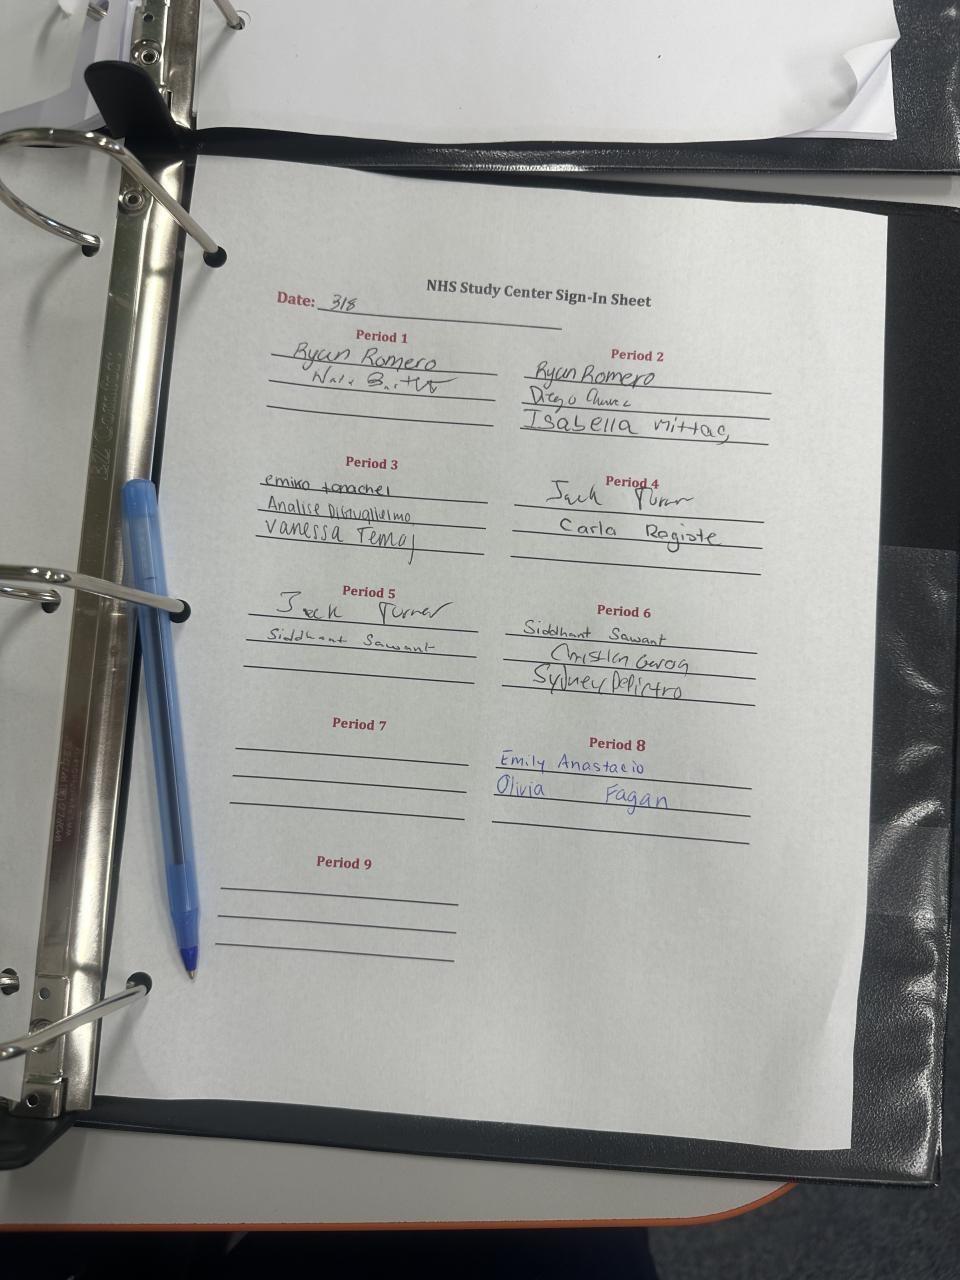 NHS Study Center Sign-In Sheet
Date: 3/8
Period 1
Ryan Romero
Period 2
Ryan Romero
Diego
Isabella Mittag
Period 3
emiko
Analise
Vanessa Temaj
Period 4
Jack Turner
Carla Registe
Period 5
Jack Turner
Siddhant Sawant
Period 6
Siddhant Sawant
Christian
Sydney DePietro
Period 7
Period 8
Emily Anastacio
Olivia Fagan
Period 9